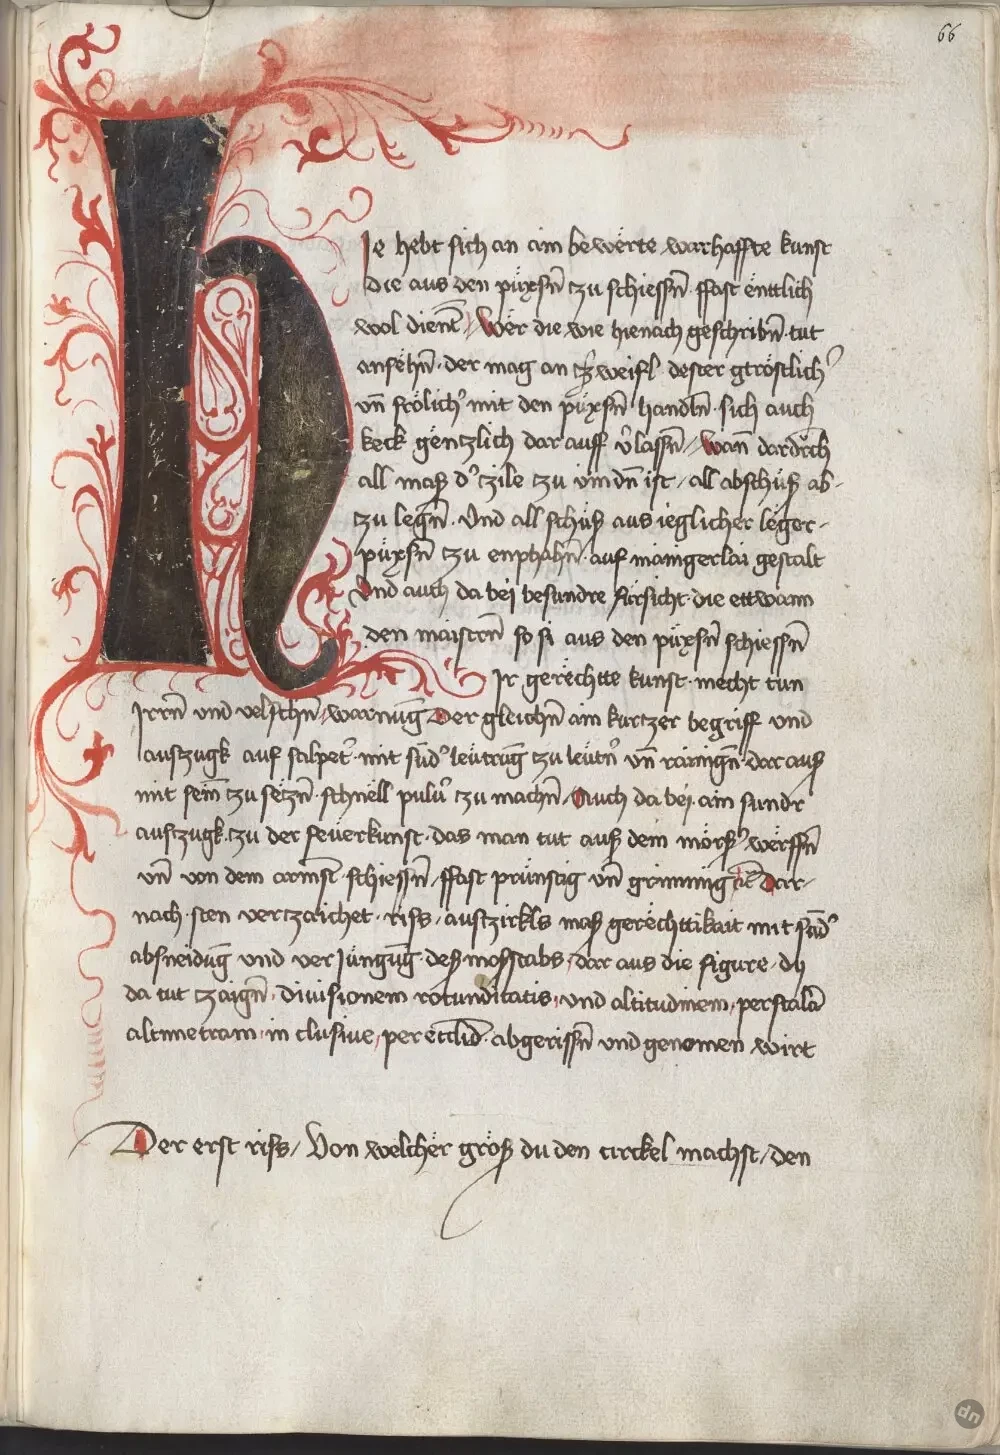 66
H
Ie hebt sich an ain bewërte warhaffte kunst
die aus den püxsn̄ tzu schiessn̄ ffast ënttlich
wol dienēt / Wër die wie hienach geschribn̄ tut
ansëhn̄ · der mag an tzweifl dester gtröstlich
vn̄ frölich mit den püxsn̄ handln̄ sich auch
keck gëntzlich darauff v̾lassn̄ / wan̄ dardurch
all mass d̾ tzile tzu vindn̄ ist / all abschüss ab-
tzu legn̄ · Und all schüss aus ieglicher leger-
püxsn̄ tzu enphahn̄ · auf mainigerlai gestalt
Vnd auch da bei besundre fürsicht · die ettwann
den maistern̄ so si aus den püxsn̄ schiessn̄
Ir gerëchtte kunst · mecht tun
Irrn̄ vnd velschn̄ / warnūg Der gleichn̄ ain kurtzer begriff vnd
austzugk auf salpet̾ · mit sūd̾ leütrūg tzu leütn̾ vn̄ rainign̄ · dar auss
mit sein̄ tzu sëtzn̄ · schnëll pulu̾ tzu machn̄ / Auch da bei · ain sundr
austzugk · tzu der feuerkunst · das man tut auss dem mörss̾ wërffn̄
vn̄ von dem armst schiessn̄ / ffast prünstig vn̄ grimmig Dar-
nach sten vertzaichet · riss / austzirkls mass gerëchttikait mit sūd̾
absneidūg vnd verjüngūg dess mossstabs / dar aus die figure · dy
da tut tzaign̄ · diuisionem rotunditatis / vnd altitudinem / per scalā
altimetram · in clusiue / per ... abgerissn̄ vnd genomen wirt
Der erst riss / Von welcher gröss du den circkel machst / den
dn